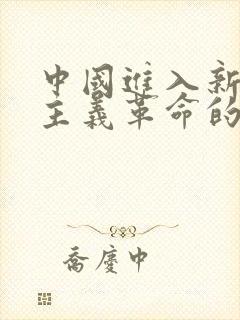 中國進入新
主義革命的
喬慶中